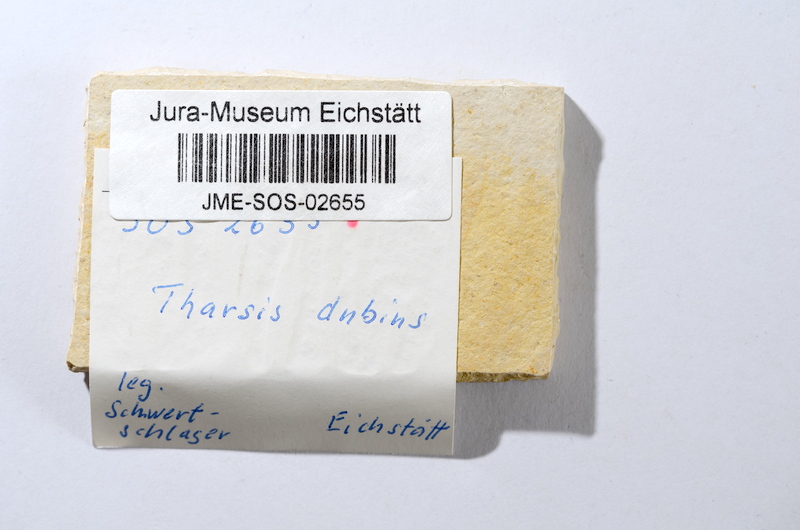 Jura-Museum Eichstätt
JME-SOS-02655
SOS 2655
Tharsis dubius
leg.
Schwert-
schlager
Eichstätt